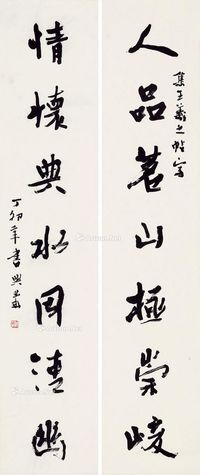 集王羲之帖字
人品若山極崇峻
情懷與水同清幽
丁卯年書